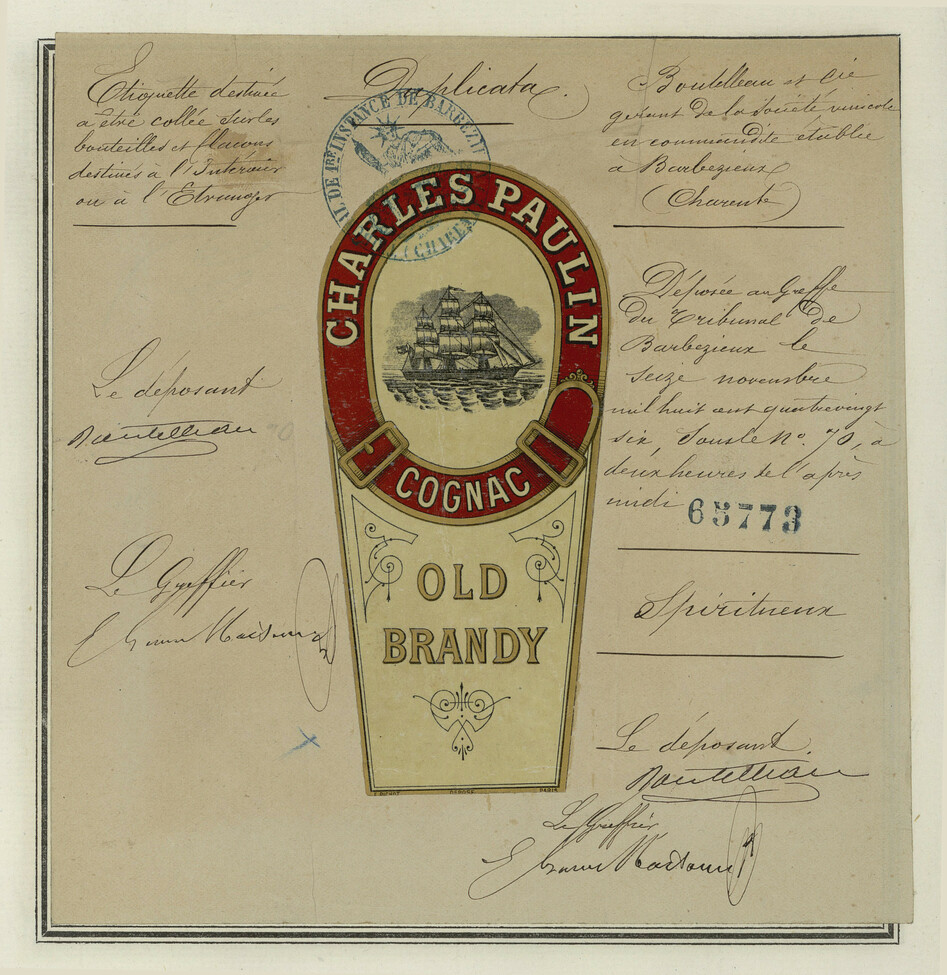 Duplicata.
Etiquette destinée
a être collée sur les
bouteilles et flacons
destinés à l'Intérieur
ou à l'Etranger
Le déposant
Boutelleau
Le Greffier
Boutelleau et Cie
gérant de la Société vinicole
en commandite établie
à Barbezieux
(Charente)
Déposée au Greffe
du Tribunal de
Barbezieux le
seize novembre
mil huit cent quatrevingt
six, sous le No. 70, à
deux heures de l'après
midi
65773
Spiritueux
Le déposant.
Boutelleau
Le Greffier
AL DE 1RE INSTANCE DE BARBEZI
CHAREN
CHARLES PAULIN
COGNAC
OLD
BRANDY
DEPOSE
PARIS